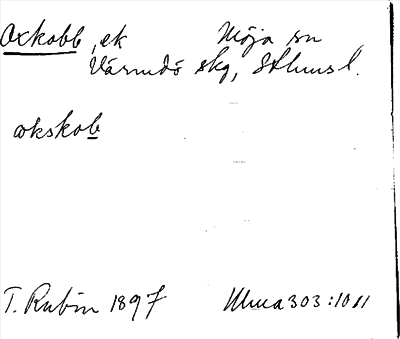 Oxkobb, ek Möja sn
Värmdö skg, Sthms l.
ωkskob
T. Rubin 1897 Ulma 303:10 11